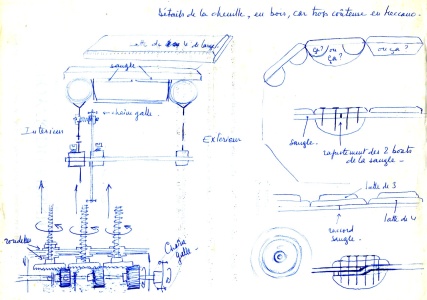 Détails de la chenille, en bois, car trop coûteux en Meccano.
latte de 4 de large
sangle
ça?
ou
ça?
ou ça?
chaîne galle
Intérieur
Extérieur
sangle
rajustement des 2 bouts
de la sangle
latte de 3
latte de 4
raccord
sangle
rondelles
Chaîne
galle